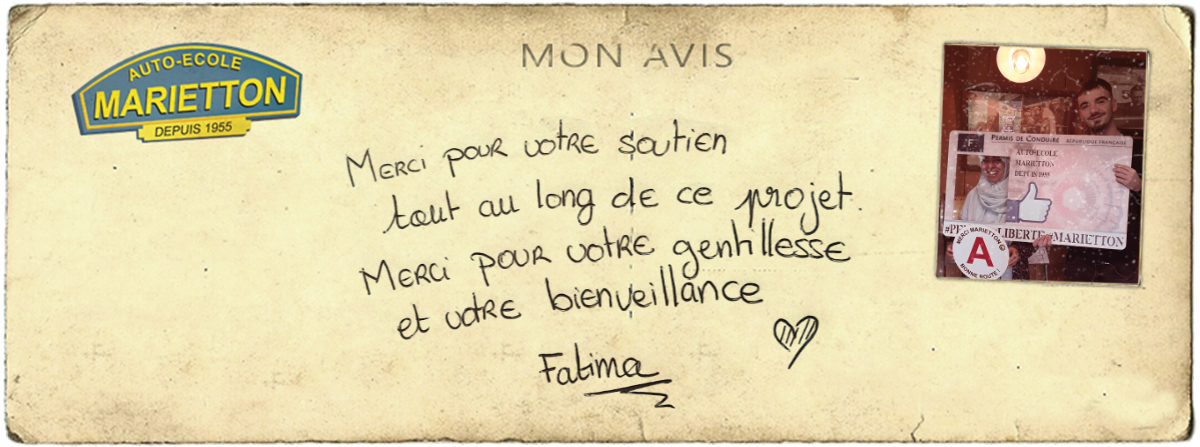 AUTO-ECOLE
MARIETTON
DEPUIS 1955
MON AVIS
MERCI pour votre soutien
tout au long de ce projet.
MERCI pour votre gentillesse
et votre bienveillance
Fatima
F
PERMIS DE CONDUIRE RÉPUBLIQUE FRANÇAISE
AUTO-ECOLE
MARIETTON
DEPUIS 1955
LIBERTE MARIETTON
MERCI MARIETTON
A
BONNE ROUTE !